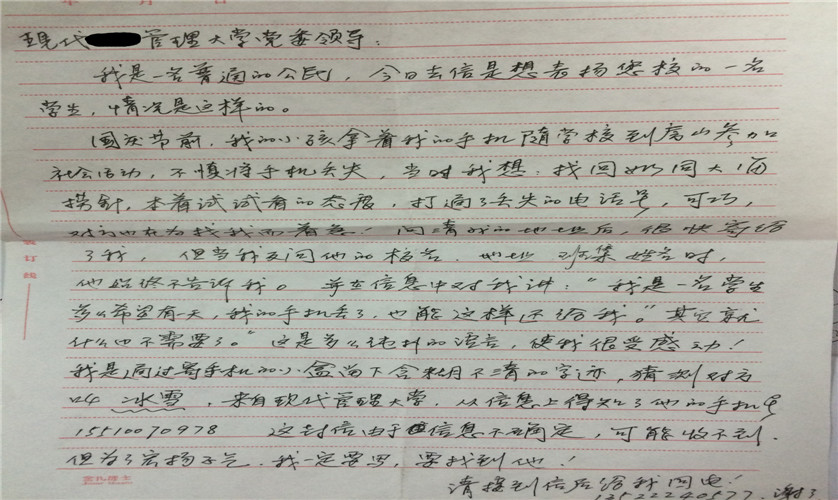 现代管理大学党委领导：
我是一名普通的公民，今日去信是想表扬您校的一名
学生，情况是这样的。
国庆节前，我的小孩拿着我的手机随学校到房山参加
社会活动，不慎将手机丢失，当时我想：找回如同大海
捞针，本着试试看的态度，打通了丢失的电话号，可巧，
对方也在为找我而着急！问清我的地址后，很快寄给
了我，但当我反问他的校名、地址、班集、姓名时，
他始终不告诉我。并在信息中对我讲："我是一名学生
多么希望有一天，我的手机丢了，也能这样还给我。"其实就
什么也不需要了。"这是多么纯朴的语言，使我很受感动！
我是通过寄手机的小盒留下含糊不清的字迹，猜测对方
叫 冰雪，来自现代管理大学，从信息上得知了他的手机号
15510070978 这封信由于信息不确定，可能收不到，
但为了宏扬正气，我一定要写，要找到他！
请接到信后给我回电！
13522240577 谢了
装订线